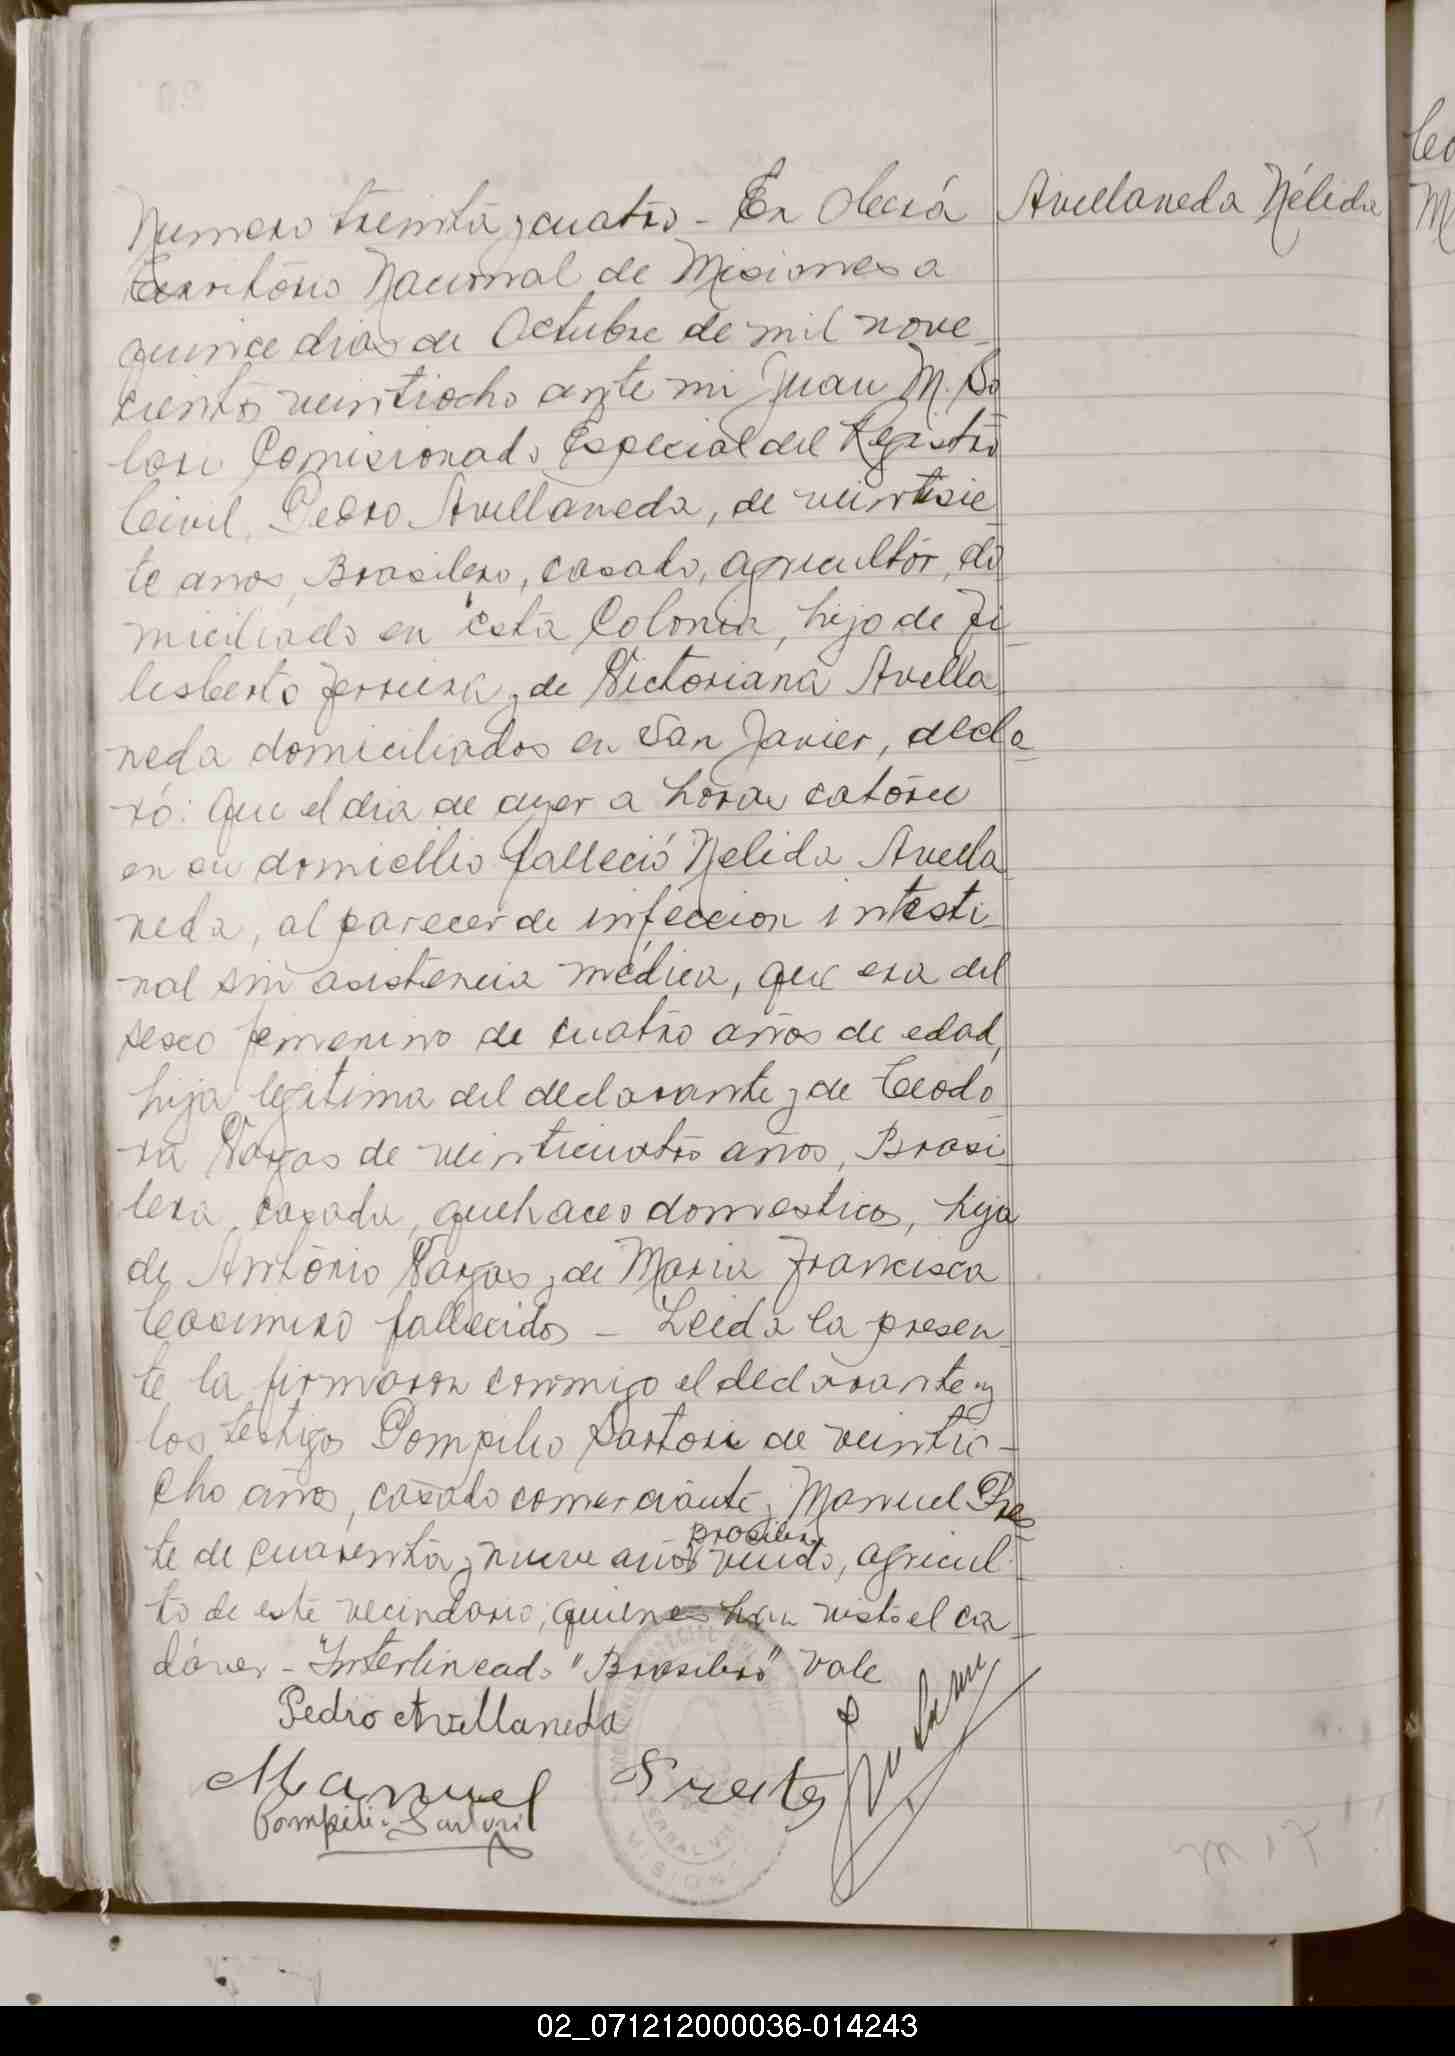 Avellaneda Nélida
Numero treinta y cuatro - En Oberá
Territorio Nacional de Misiones a
quince dias de Octubre de mil nove
cientos veintiocho ante mi Juan M. So
lari Comisionado Especial del Registro
Civil, Pedro Avellaneda, de veintisie
te años, Brasilero, casado, agricultor, do
miciliado en esta Colonia, hijo de Fi
lisberto Ferreira y de Victoriana Avella
neda domiciliados en San Javier, decla
ró: que el dia de ayer a horas catorce
en su domicilio falleció Nelida Avella
neda, al parecer de infeccion intesti
nal sin asistencia médica, que era del
sexo femenino de cuatro años de edad,
hija legitima del declarante y de Teodo
ra Vargas de veinticuatro años, Brasi
lera, casada, quehaceres domesticos, hija
de Antonio Vargas y de Maria Francisca
Casimiro fallecidos - Leida la presen
te la firmaron conmigo el declarante y
los testigos Pompilio Sartori de veintio-
cho años, casado comerciante y Manuel Pres
te de cuarenta y nueve años brasilero viudo, agricul
to de este vecindario, quienes han visto el ca
dáver - Interlineado "Brasilero" Vale
Pedro Avellaneda
Manuel Prestes
Pompilio Sartori
MISIONES
02_071212000036-014243